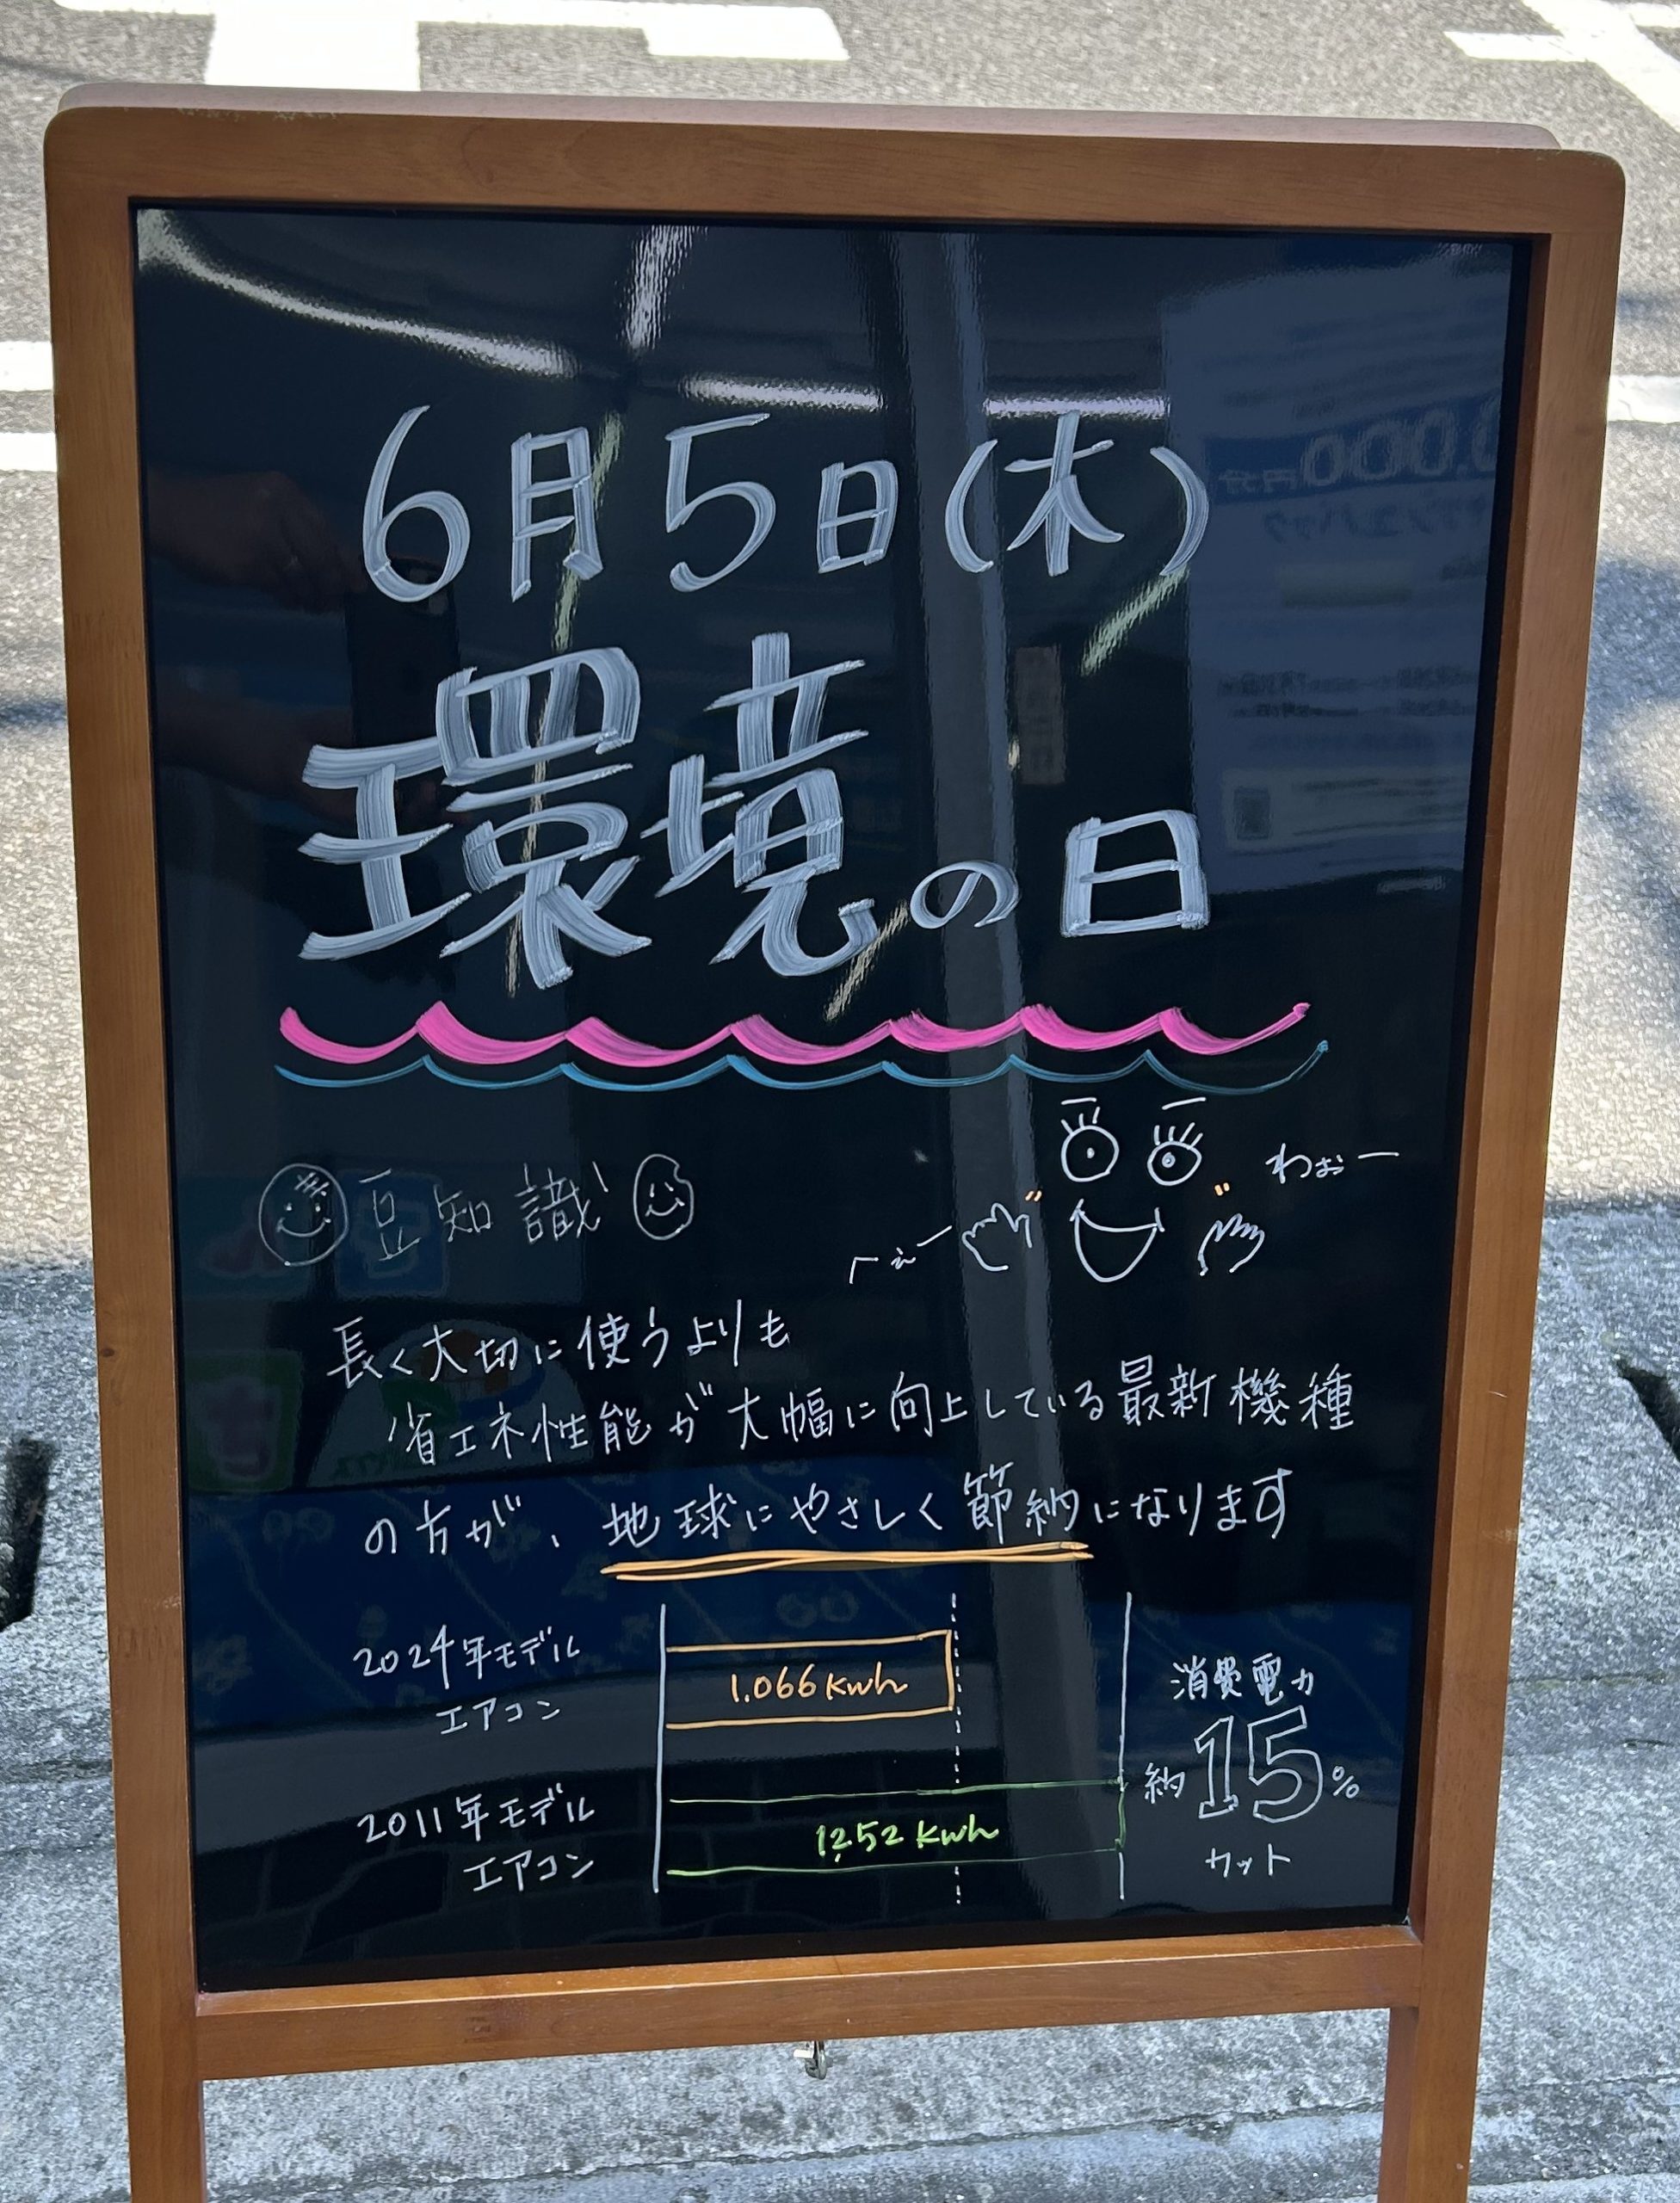 6月5日(木)
環境の日
豆知識!
わぉー
へぇー
長く大切に使うよりも
省エネ性能が大幅に向上している最新機種
の方が、地球にやさしく節約になります
2024年モデル
エアコン
1.066 Kwh
2011年モデル
エアコン
1,252 Kwh
消費電力
約15%
カット